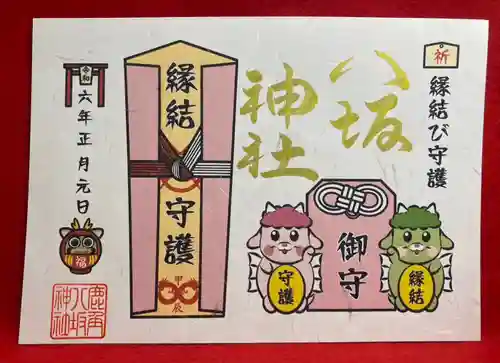 祈
縁結び守護
八坂
神社
御守
守護
縁結
縁結
守護
甲辰
令和
六年正月元日
福
鹿角
八坂
神社